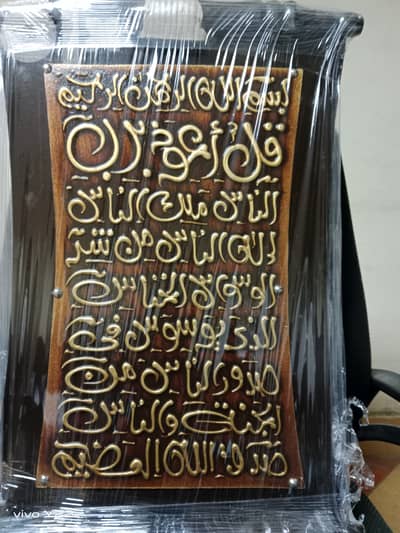 بسم الله الرحمن الرحيم
قل أعوذ برب
الناس ملك الناس
إله الناس من شر
الوسواس الخناس
الذي يوسوس في
صدور الناس من
الجنة والناس
صدق الله العظيم
vivo